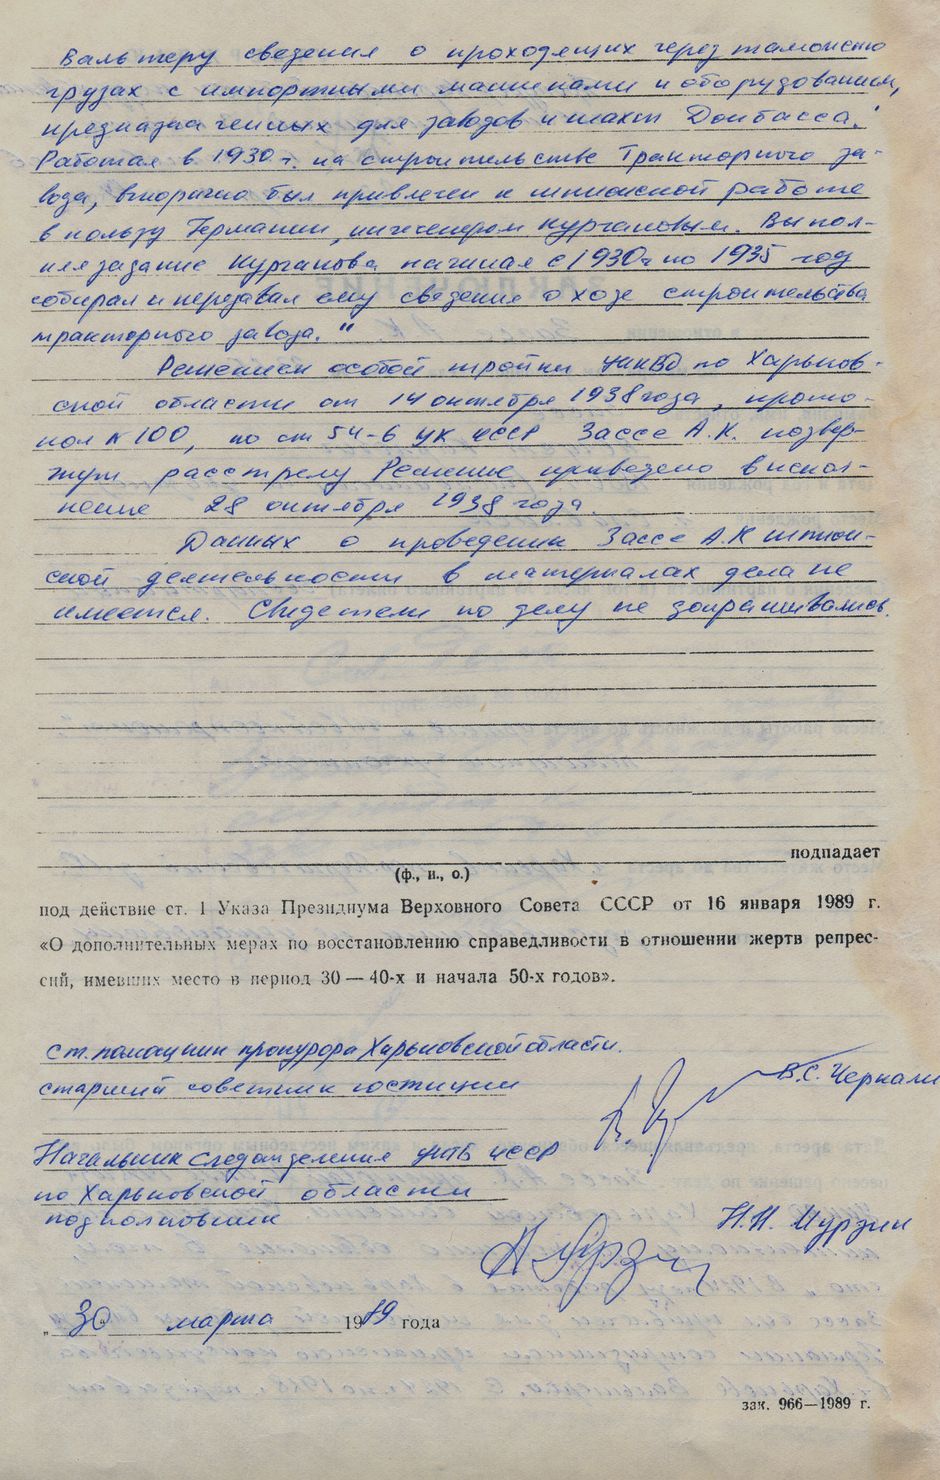 Вальтеру сведения о проходящих через таможню
грузах с импортными машинами и оборудованием,
предназначенных для заводов и шахт Донбасса.
Работая в 1930 г. на строительстве Тракторного за-
вода, вторично был привлечен к шпионской работе
в пользу Германии, инженером Кургановым. Выпол-
няя задание Курганова начиная с 1930г по 1935 год
собирал и передавал ему сведения о ходе строительства
тракторного завода."
Решением особой тройки УНКВД по Харьков-
ской области от 14 октября 1938 года, прото-
кол № 100, по ст 54-6 УК УССР Зассе А.К. подвер-
жен расстрелу Решение приведено в испол-
нение 28 октября 1938 года.
Данных о проведении Зассе А.К шпион-
ской деятельности в материалах дела не
имеется. Свидетели по делу не допрашивались.
подпадает
(ф., и., о.)
под действие ст. 1 Указа Президиума Верховного Совета СССР от 16 января 1989 г.
«О дополнительных мерах по восстановлению справедливости в отношении жертв репрес-
сий, имевших место в период 30—40-х и начала 50-х годов».
Ст. помощник прокурора Харьковской области.
старший советник юстиции
В.С. Черкали
Начальник следотделения УКГБ УССР
по Харьковской области
подполковник
Н.Н. Мурзин
„ 30 марта 1989 года
зак. 966—1989 г.